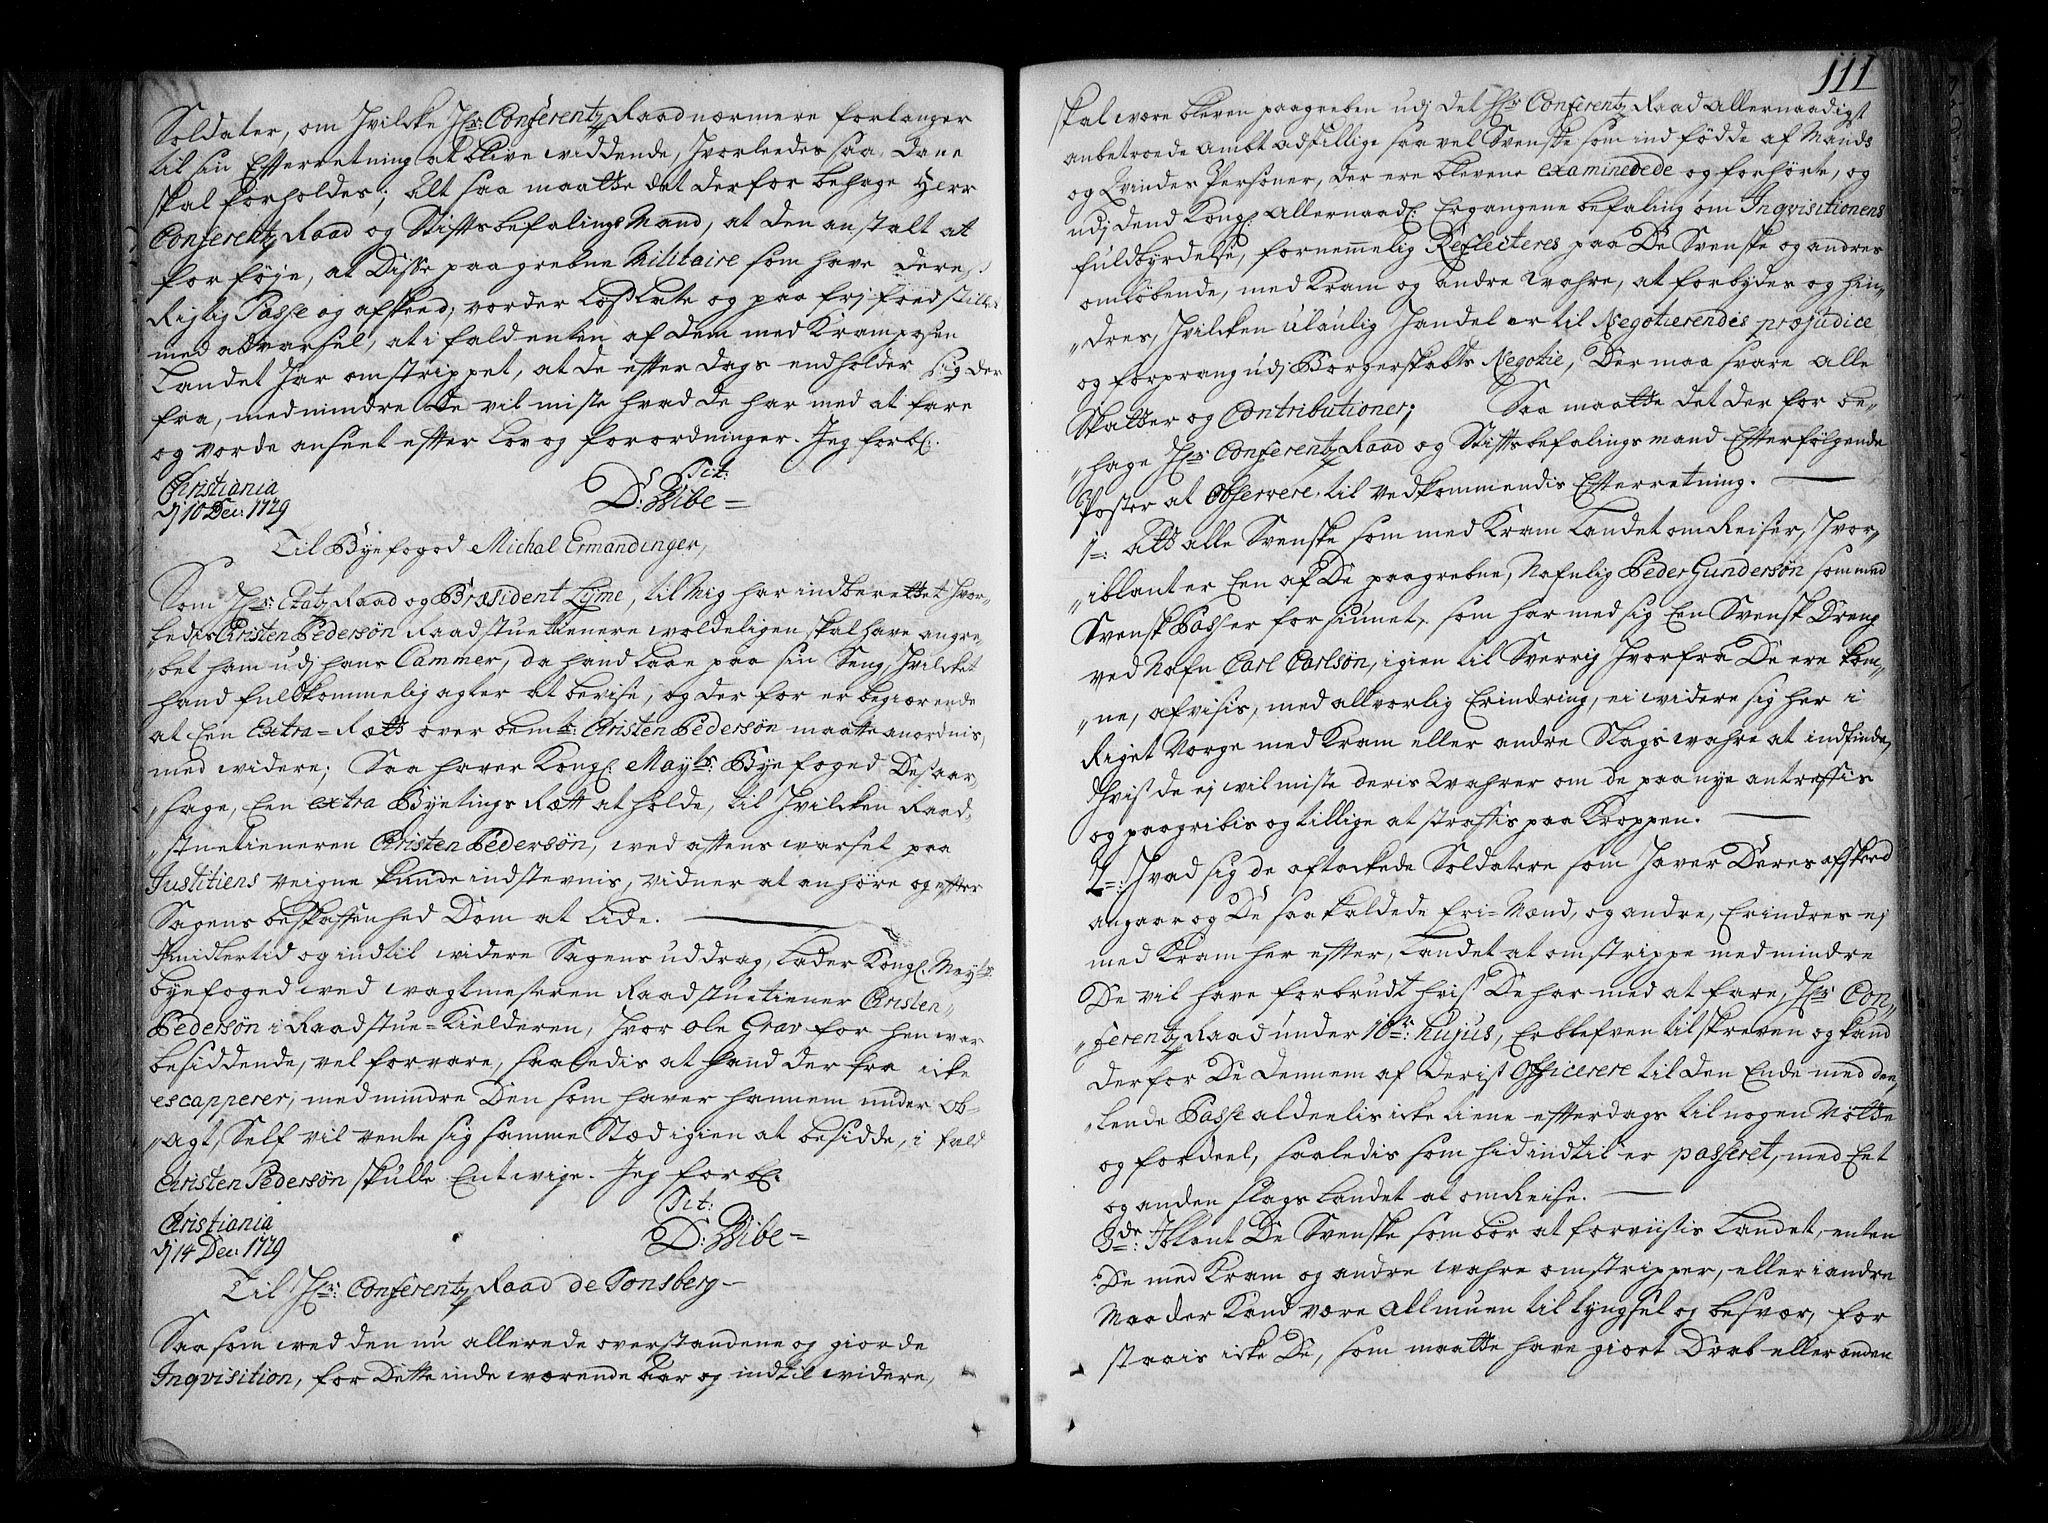 Soldater, om hvilcke Hr: Conferentz Raad nærmere forlanger
til sin Efterretning at blive widdende, hvorleedes saa dane
skal forholdes; Alt saa maatte det derfor behage Herr
Conferentz Raad og Stiftsbefalings Mand, at den anstalt at
forføje, at Disse paagrebne Militaire som have deres
Rigtig Passe og afskeed, vorder Loslatt og paa frj foed stillet
med advarsel, at i fald enten af dem med Kram
Landet har omstrippet, at de efter dags endholder sig der
fra, med mindre De vil miste hvad de har med at fare
og vorde anseet efter Lov og forordninger. Jeg forbl:
Christiania Tit:
dj 10 Dec: 1729 D: Wibe =
Til Byefoged Michal Ermandinger,
Som Hr: Etatz Raad og Præsident Lÿme, til Mig har indberettet hvor-
ledis Christen Pedersøn Raadstuetienere woldeligen skal have angre-
„bet ham udj hans Cammer, da hand laae paa sin Seng, hvilcket
hand fuldkommelig agter at bevise, og der for er begiærende
at Een Extra = Rætt over bemte: Christen Pedersøn maatte anordnis,
med widere; Saa haver Kongl: Mayts: Byefoged Desaar-
„sage, Een extra Byetings Rætt at holde, til hvilcken Raad-
„stuetieneren Christen Pedersøn, wed aftens warsel paa
Justitiens veigne kunde indstevnis, vidner at anhøre og efter
Sagens beskaffenhed Dom at lide.
Imidlertid og indtil widere Sagens uddrag, lader Kongl: Mayts:
byefoged wed wagtmesteren Raadstuetiener Christen
Pedersøn i Raadstue = Kielderen, hvor Ole Grav for hen war
besiddende, vel forvare, saaledis at hand der fra icke
escapperer, med mindre Den som haver hannem under ob-
„agt, Self vil vente sig samme Stæd igien at besidde, i fald
Christen Pedersøn skulle Entwige. Jeg forbl:
Christiania Tit:
dj 14 Dec: 1729 D: Wibe =
Til Hr: Conferentz Raad de Tonsberg –
Saa som wed den nu allerede overstandene og giorde
Inqvisition, for Dette inde wærende Aar og indtil widere,
111
skal være bleven paagreben udj det Hr: Conferentz Raad Allernaadigst
anbetroede Ambt adskillige saavel Svenske som indfødde af Mands
og Qvindes Persohner, der ere blevene examinedede og forhørte, og
udj dend Kongl: Allernaadl: Ergangene befaling om Inqvisitionens
fuldbyrdelse, fornemmelig Reflecteres paa De Svenske og andres
omløbende, med Kram og andre wahre, at forbydes og hin-
„dres, hvilcken ulaulig handel er til Negotierendes præjudice
og forprang udj Borgerskabts Negotie, Der maa svare Alle
Skatter og Contributioner; Saa maatte det der for be-
„hage Hr: Conferentz Raad og Stiftsbefalings mand Efterfølgende
Poster at Observere til vedkommendis Efterretning.
1=: Att alle Svenske som med Kram Landet omReiser, hvor-
„iblant er Een af De paagrebne, Nafnlig Peder Gundersøn som med
Svensk Pass er forsiunet, som har med sig Een Svensk Dreng
ved Nafn Carl Carlsøn, igien til Sverrig hvorfra De ere kom-
„ne, afvisis, med allvorlig Erindring, ei widere sig her i
Riget Norge med Kram eller andre Slags wahre at indfinde,
dhvis de ej wil miste deris Wahrer om de paa nye antreffis
og paagribis og tillige at straffis paa Kroppen.
2=: Hvad sig de aftackede Soldatere som haver Deres afskeed
angaar og De saa kaldede fri=Mænd, og andre, Erindres ej
med Kram her efter, Landet at omstrippe med mindre
De vil have forbrudt hvis De har med at fare, Hr: Con-
„ferentz Raad under 10de: hujus, Er blefven tilskreven og kand
derfor De dennem af Deris Officerere til den Ende med dee-
„lende Passe aldeelis icke tiene efterdags til nogen Nøtte
og fordeel, saaledis som hid indtil er passeret, med Eet
og anden slags Landet at omReise.
3de: Iblant De Svenske som bør at forviisis Landet, enten
De med Kram og andre wahre omstripper, eller i andre
Maader kand være Allmuen til tyngsel og besvær, for
staais icke De, som maatte have giort Drab eller anden